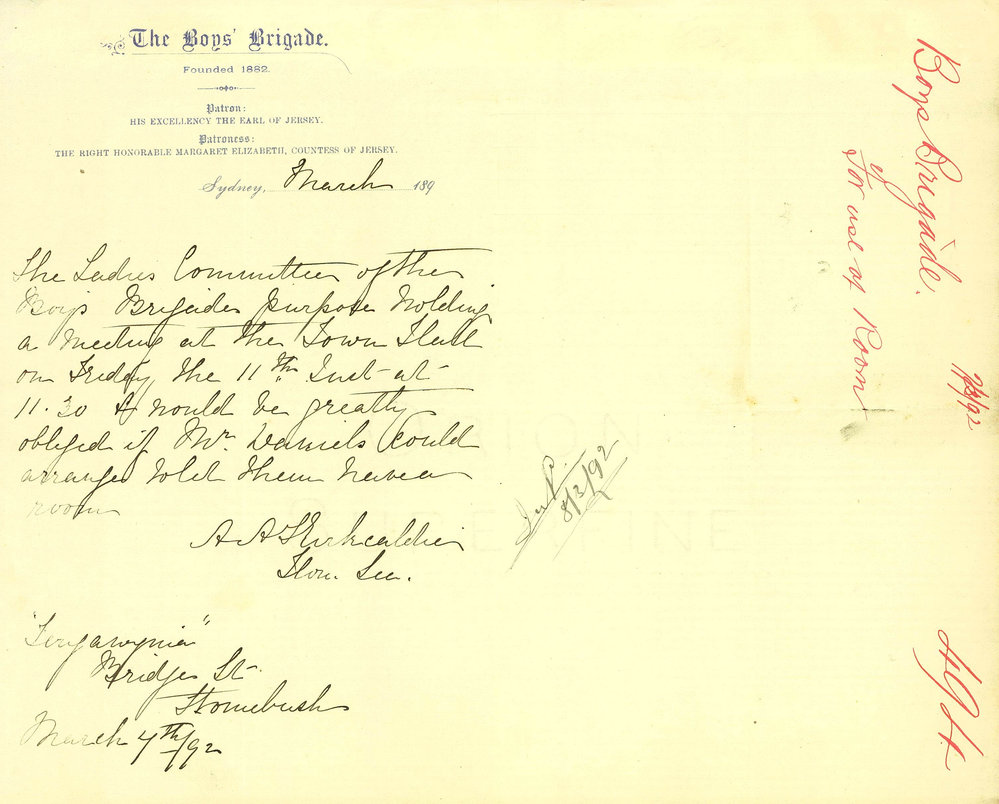 The Boys' Brigade.
Founded 1882.
Patron:
HIS EXCELLENCY THE EARL OF JERSEY.
Patroness:
THE RIGHT HONORABLE MARGARET ELIZABETH, COUNTESS OF JERSEY.
Sydney, March 189
The Ladies Committee of the
Boys Brigade purpose holding
a meeting at the Town Hall
on Friday the 11th Inst at
11.30 & would be greatly
obliged if Mr. Daniels could
arrange to let them have a
room
A A Kirkcaldie
Hon. Sec.
Bridge St
Homebush
March 7th/92
8/3/92
Boys Brigade.
For use of Room
7/3/92